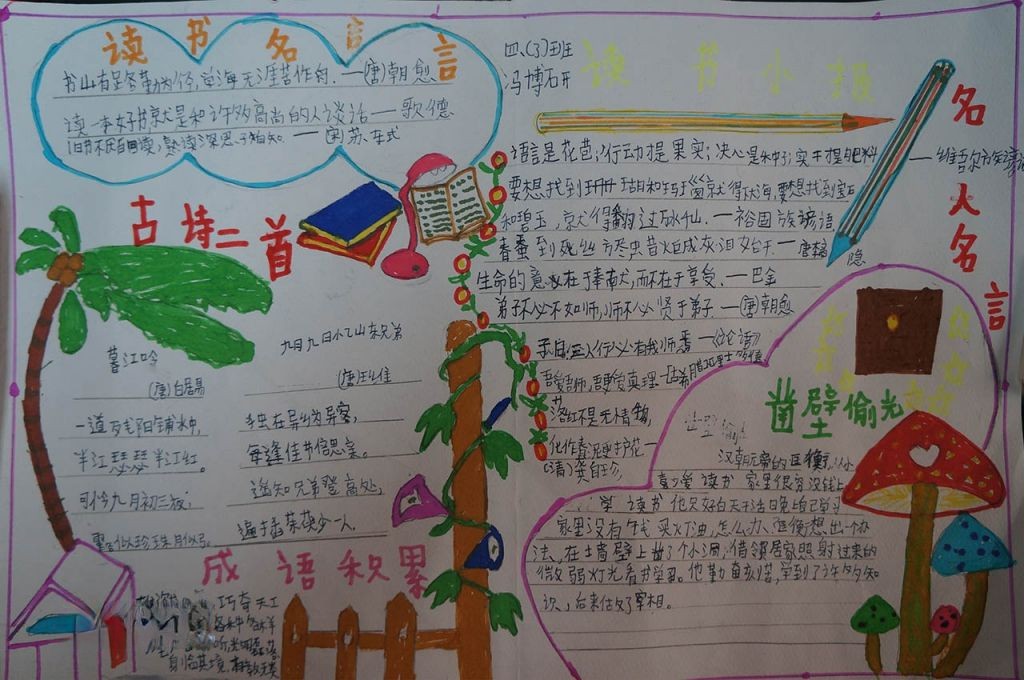 读书名言
书山有路勤为径,学海无涯苦作舟。—(唐)朝愈
读一本好书就是和许多高尚的人谈话——歌德
旧书不厌百回读,熟读深思子自知。—(宋)苏车式
古诗二首
暮江吟
(唐)白居易
一道残阳铺水中,
半江瑟瑟半江红。
可怜九月初三夜,
九月九日忆山东兄弟
(唐)王维
独在异乡为异客,
每逢佳节倍思亲。
遥知兄弟登高处,
遍插茱萸少一人。
成语积累
巧夺天工
各种各样
身临其境,
四、(3)班
冯博研
读书小报
名人名言
语言是花苞;行动是果实;决心是种子;实干是肥料
—维吾尔族谚语
要想找到珊瑚和珍珠就得下大海,要想找到宝石
和碧玉,就得翻过冰山.—裕固族谚语
春蚕到死丝方尽虫昔火巨成灰泪始干—唐李商隐
生命的意义在于奉献,而不在于享受.—巴金
弟子不必不如师,师不必贤于弟子—(唐)朝愈
子曰:三人行必有我师焉—《论语》
吾爱吾师,吾更爱真理—古希腊亚里士多德
落红不是无情物,
化作春泥更护花—
(清)龚自珍
凿壁偷光
汉朝元帝的匡衡,从小
喜欢读书 家里很穷没钱上
学 读书 他只好白天干活晚上自己学习
家里没有钱买火丁油,怎么办,匡衡想出一个办
法,在土墙壁上凿了个小洞,借邻居家照射过来的
微弱灯光看书学习。他勤奋刻苦,学到了许多知
识,后来做了宰相。